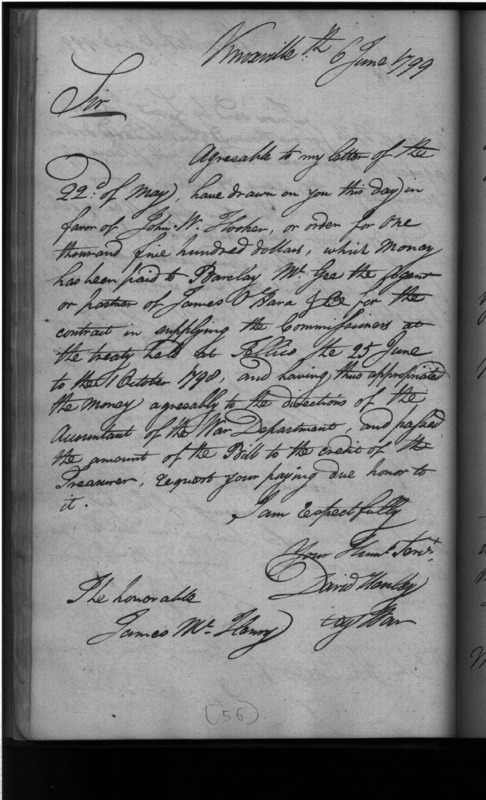 Knoxville th 6 June 1799
Sir
Agreeable to my letter of the
22d of May, have drawn on you this day in
favor of John W. Hooker, or order for one
thousand five hundred dollars, which money
has been paid to Barclay Mc Gee the Agent
or partner of James O Hara & Co for the
contract in supplying the Commissioners at
the treaty held at Tellico, the 25 June
to the 1 October 1798, and having thus appropriated
the money agreeably to the directions of the
Accountant of the War Department, and passed
the amount of the Bill to the credit of the
Treasurer, request your paying due honor to
it.
I am Respectfully
Your Humt. Servt.
David Henley
Agt War
The honorable
James Mc. Henry
(56)